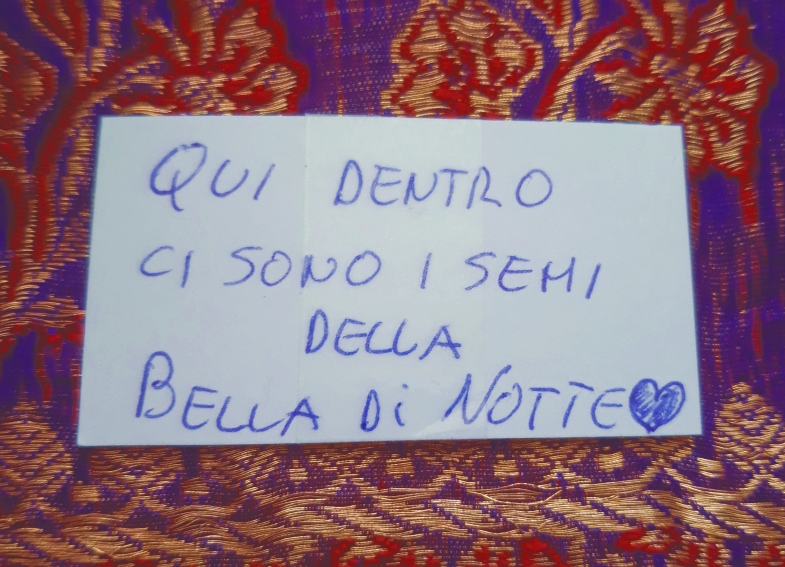 QUI DENTRO
CI SONO I SEMI
DELLA
BELLA Di NOTTE♥